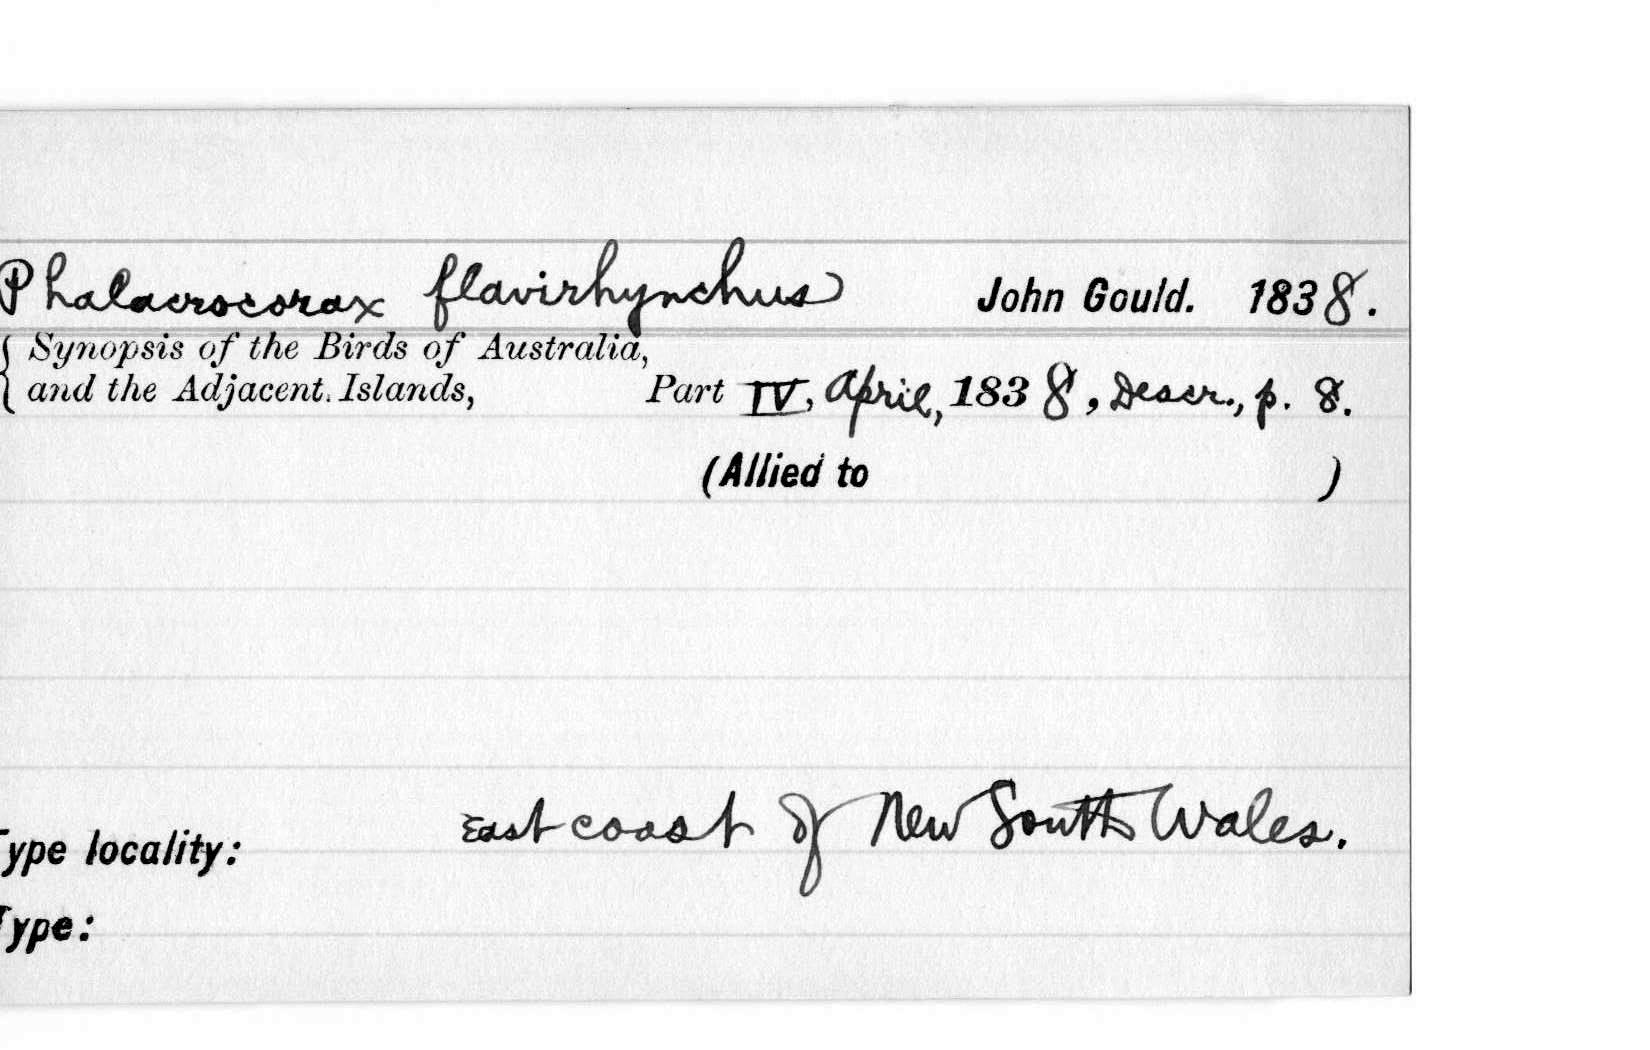 Phalacrocorax flavirhynchus John Gould. 1838.
Synopsis of the Birds of Australia,
and the Adjacent Islands, Part IV, April, 1838, Descr., p. 8.
(Allied to )
Type locality: East coast of New South Wales.
Type: